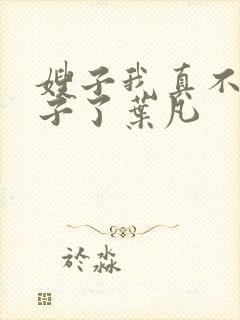 嫂子我真不
子了葉凡
於淼